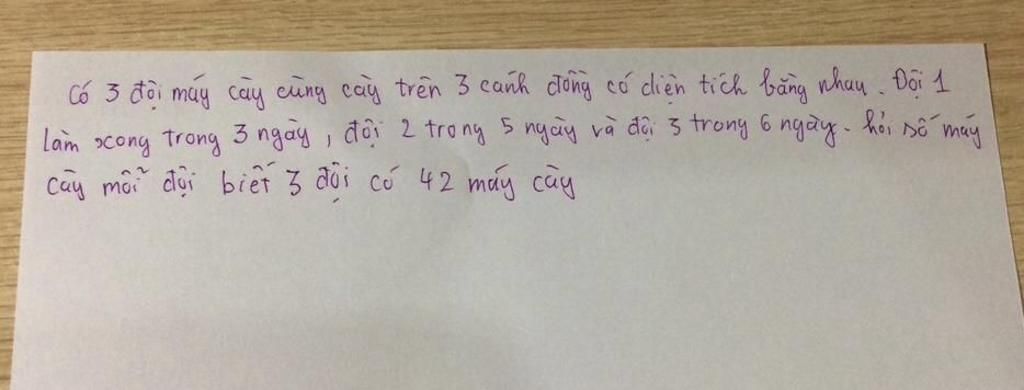 Có 3 đội máy cày cùng cày trên 3 cánh đồng có diện tích bằng nhau. Đội 1
làm xong trong 3 ngày, đội 2 trong 5 ngày và đội 3 trong 6 ngày. hỏi số máy
cày mỗi đội biết 3 đội có 42 máy cày